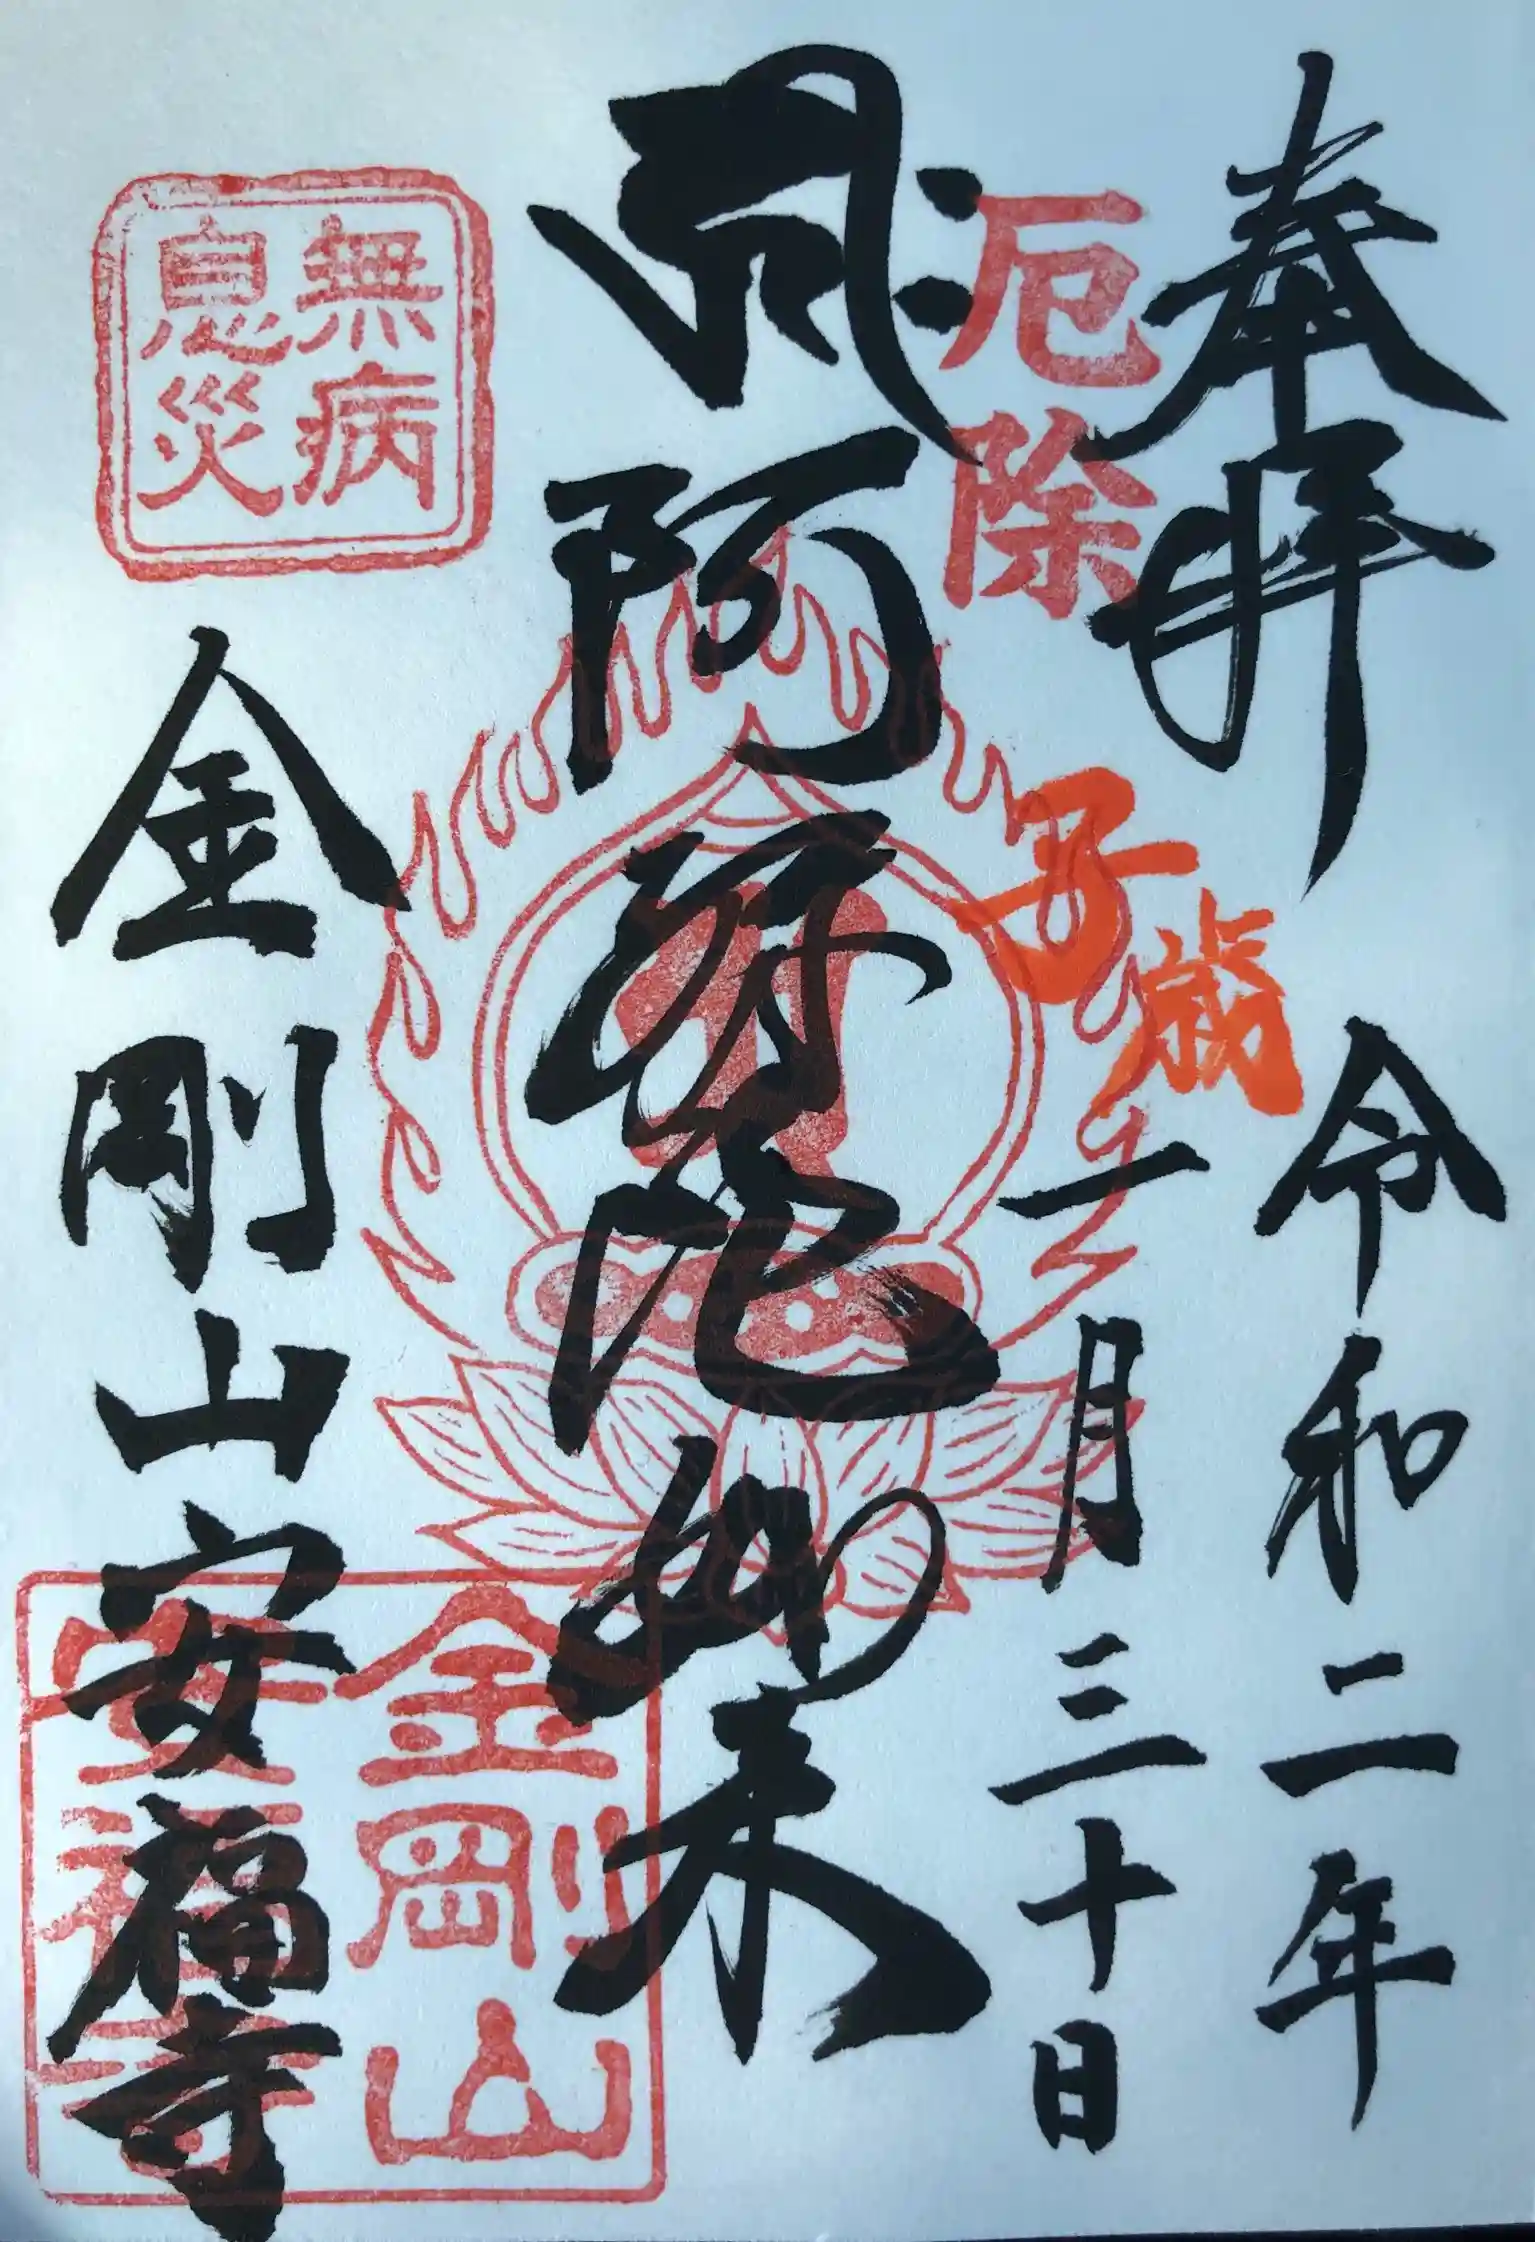 奉拝
子歳
令和二年
一月三十日
厄除
阿弥陀如来
無病
息災
金剛山安福寺
金剛山
安福寺